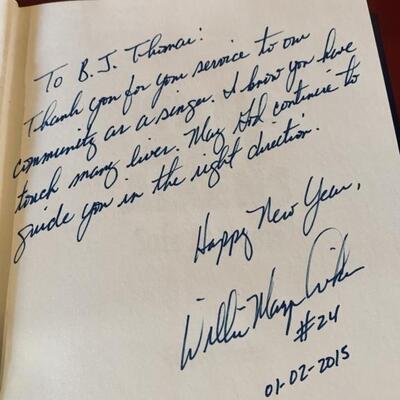 To B. J. Thomas:
Thank you for your service to our
community as a singer. I know you have
touch many lives. May God continue to
guide you in the right direction.
Happy New Year,
Willie Mays Aikens
#24
01-02-2015